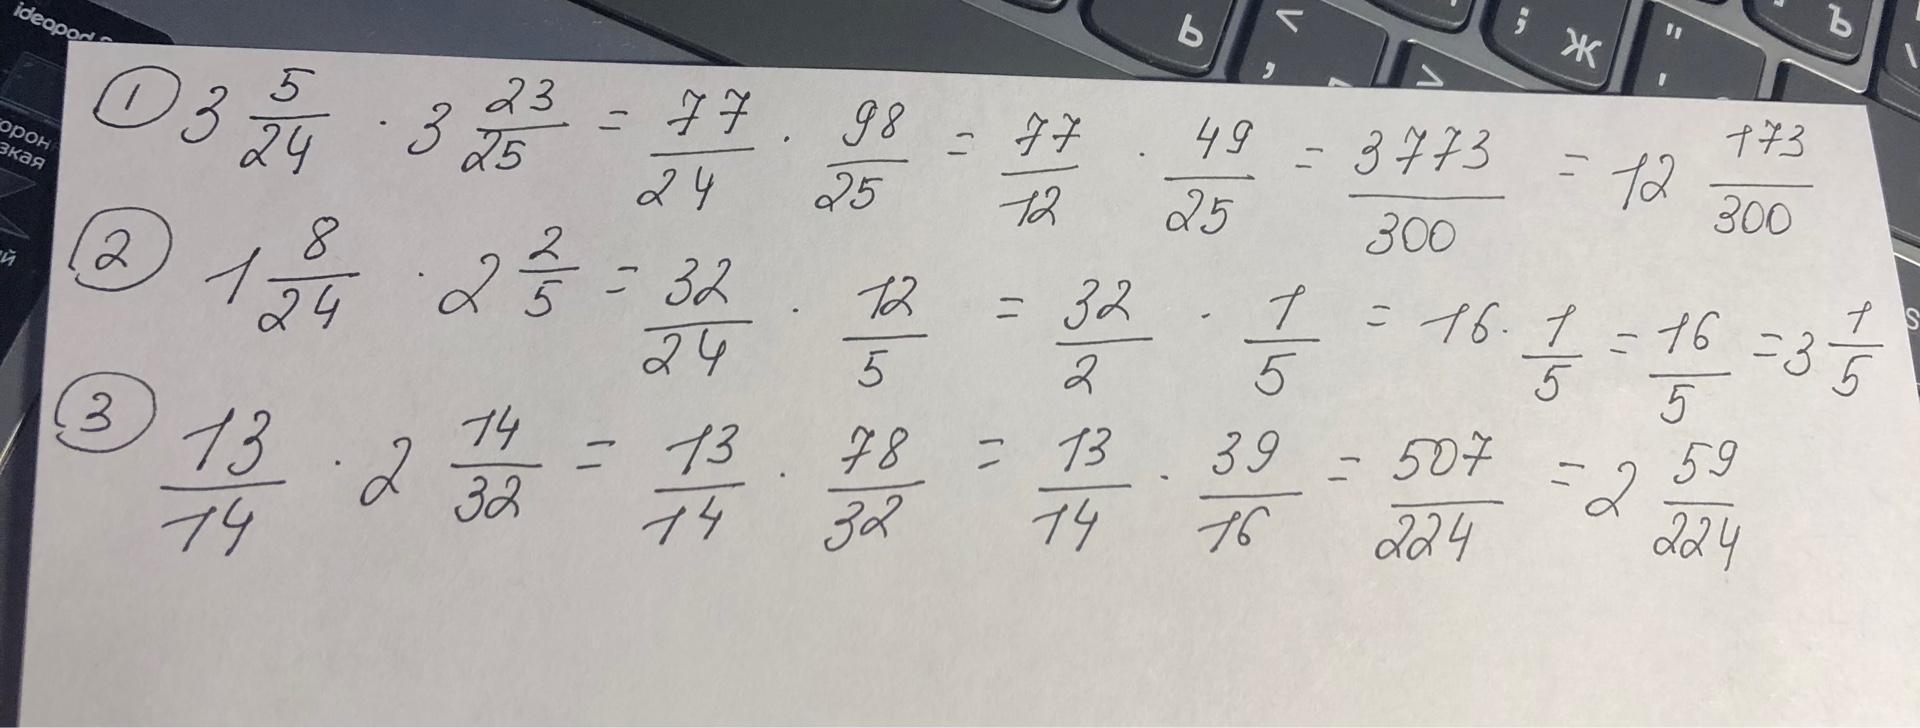 ideapad
ь < , > ; ж " ' ъ \
орон
зкая
й
s
① 3 5/24 · 3 23/25 = 77/24 · 98/25 = 77/12 · 49/25 = 3773/300 = 12 173/300
② 1 8/24 · 2 2/5 = 32/24 · 12/5 = 32/2 · 1/5 = 16 · 1/5 = 16/5 = 3 1/5
③ 13/14 · 2 14/32 = 13/14 · 78/32 = 13/14 · 39/16 = 507/224 = 2 59/224